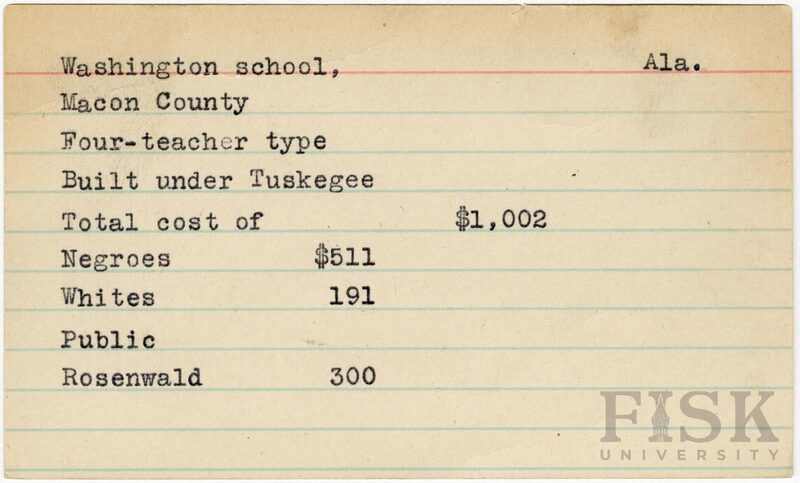 Washington school, Ala.
Macon County
Four-teacher type
Built under Tuskegee
Total cost of $1,002
Negroes $511
Whites 191
Public
Rosenwald 300
FISK
UNIVERSITY